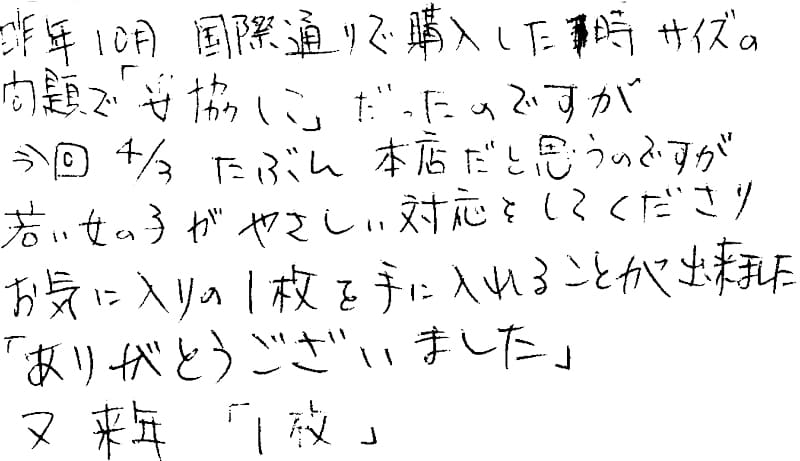 昨年10月 国際通りで購入した時 サイズの
問題で「妥協した」だったのですが
今回 4/3 たぶん 本店だと思うのですが
若い女の子が やさしい対応をしてくださり
お気に入りの1枚を手に入れることが出来ました
「ありがとうございました」
又 来年 「1枚」